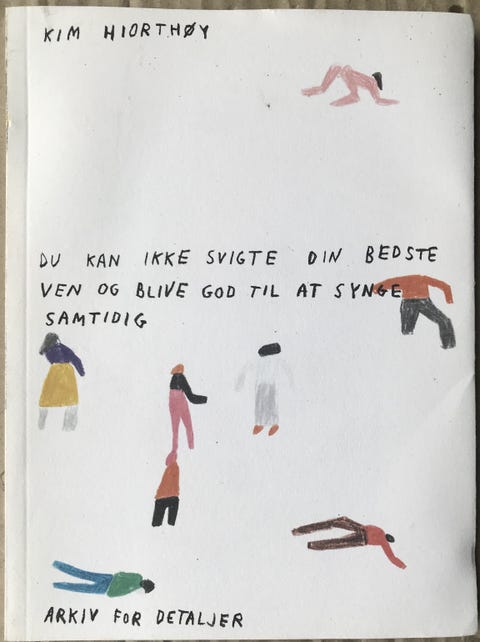 KIM HIORTHØY
DU KAN IKKE SVIGTE DIN BEDSTE
VEN OG BLIVE GOD TIL AT SYNGE
SAMTIDIG
ARKIV FOR DETALJER